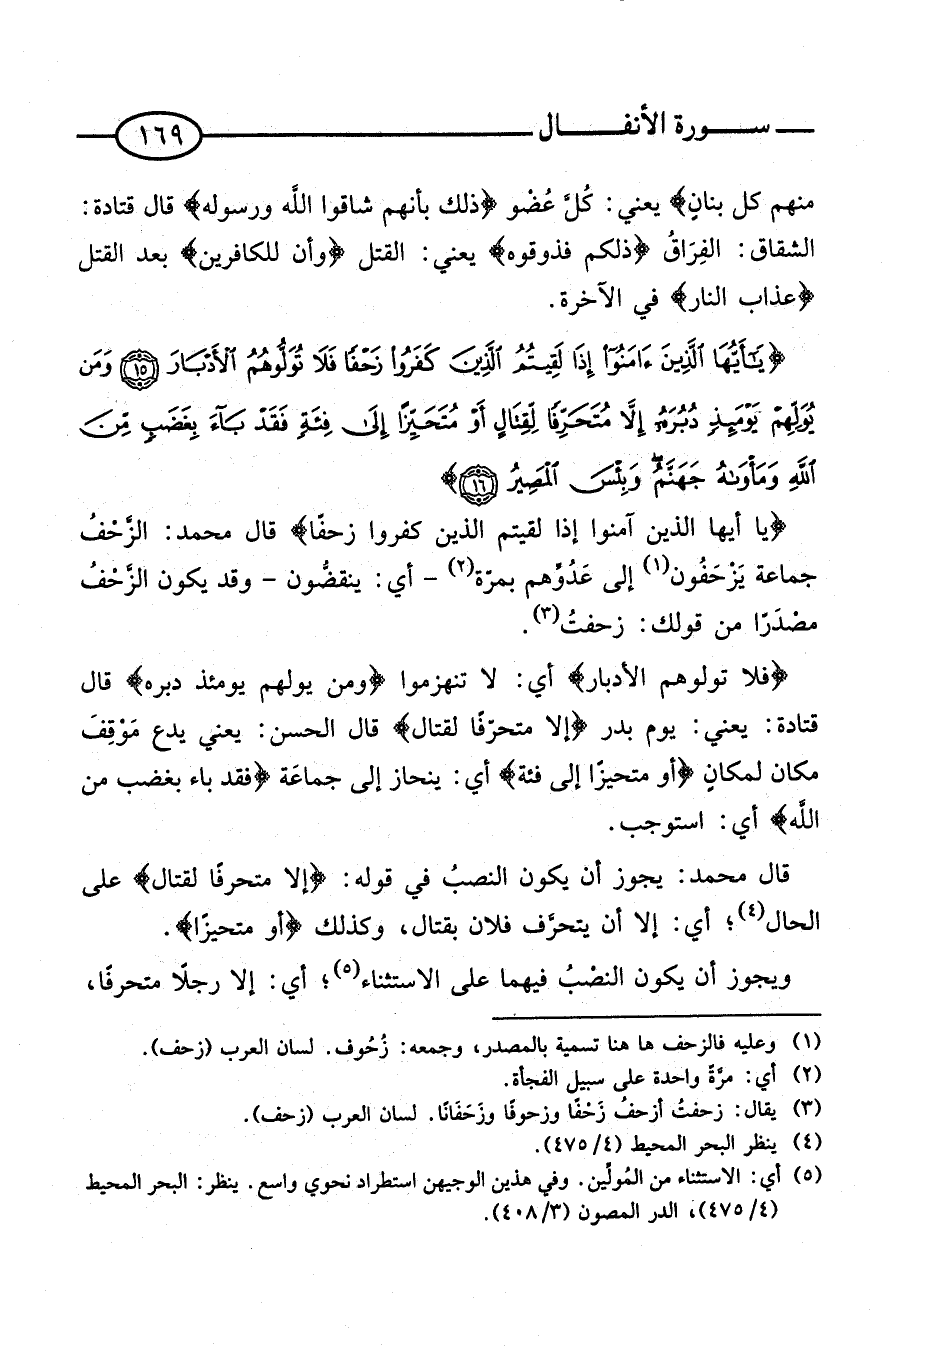 سورة الأنفال ١٦٩
منهم كل بنانٍ﴾ يعني: كُلَّ عُضْو ﴿ذلك بأنهم شاقوا اللَّه ورسوله﴾ قال قتادة:
الشقاق: الفِرَاقُ ﴿ذلكم فذوقوه﴾ يعني: القتل ﴿وأن للكافرين﴾ بعد القتل
﴿عذاب النار﴾ في الآخرة.
﴿يَٰٓأَيُّهَا ٱلَّذِينَ ءَامَنُوٓاْ إِذَا لَقِيتُمُ ٱلَّذِينَ كَفَرُواْ زَحْفًا فَلَا تُوَلُّوهُمُ ٱلْأَدْبَارَ ١٥ وَمَن
يُوَلِّهِمْ يَوْمَئِذٍ دُبُرَهُۥٓ إِلَّا مُتَحَرِّفًا لِّقِتَالٍ أَوْ مُتَحَيِّزًا إِلَىٰ فِئَةٍ فَقَدْ بَآءَ بِغَضَبٍ مِّنَ
ٱللَّهِ وَمَأْوَىٰهُ جَهَنَّمُۖ وَبِئْسَ ٱلْمَصِيرُ ١٦﴾
﴿يا أيها الذين آمنوا إذا لقيتم الذين كفروا زحفًا﴾ قال محمد: الزَّحْفُ
جماعة يَزْحَفُون(١) إلى عَدُوِّهم بمرّة(٢) - أي: ينقضُّون - وقد يكون الزَّحْفُ
مصْدَرًا من قولك: زحفتُ(٣).
﴿فلا تولوهم الأدبار﴾ أي: لا تنهزموا ﴿ومن يولهم يومئذ دبره﴾ قال
قتادة: يعني: يوم بدر ﴿إلا متحرّفًا لقتال﴾ قال الحسن: يعني يدع مَوْقِفَ
مكان لمكانٍ ﴿أو متحيزًا إلى فئة﴾ أي: ينحاز إلى جماعَة ﴿فقد باء بغضب من
اللَّه﴾ أي: استوجب.
قال محمد: يجوز أن يكون النصبُ في قوله: ﴿إلا متحرفًا لقتال﴾ على
الحال(٤)؛ أي: إلا أن يتحرَّف فلان بقتال، وكذلك ﴿أو متحيزًا﴾.
ويجوز أن يكون النصْبُ فيهما على الاستثناء(٥)؛ أي: إلا رجلًا متحرفًا،
(١) وعليه فالزحف ها هنا تسمية بالمصدر، وجمعه: زُحُوف. لسان العرب (زحف).
(٢) أي: مرَّةً واحدة على سبيل الفجأة.
(٣) يقال: زحفتُ أزحفُ زَحْفًا وزحوفًا وزَحَفَانًا. لسان العرب (زحف).
(٤) ينظر البحر المحيط (٤/ ٤٧٥).
(٥) أي: الاستثناء من المُولِّين. وفي هذين الوجيهن استطراد نحوي واسع. ينظر: البحر المحيط
(٤/ ٤٧٥)، الدر المصون (٣/ ٤٠٨).